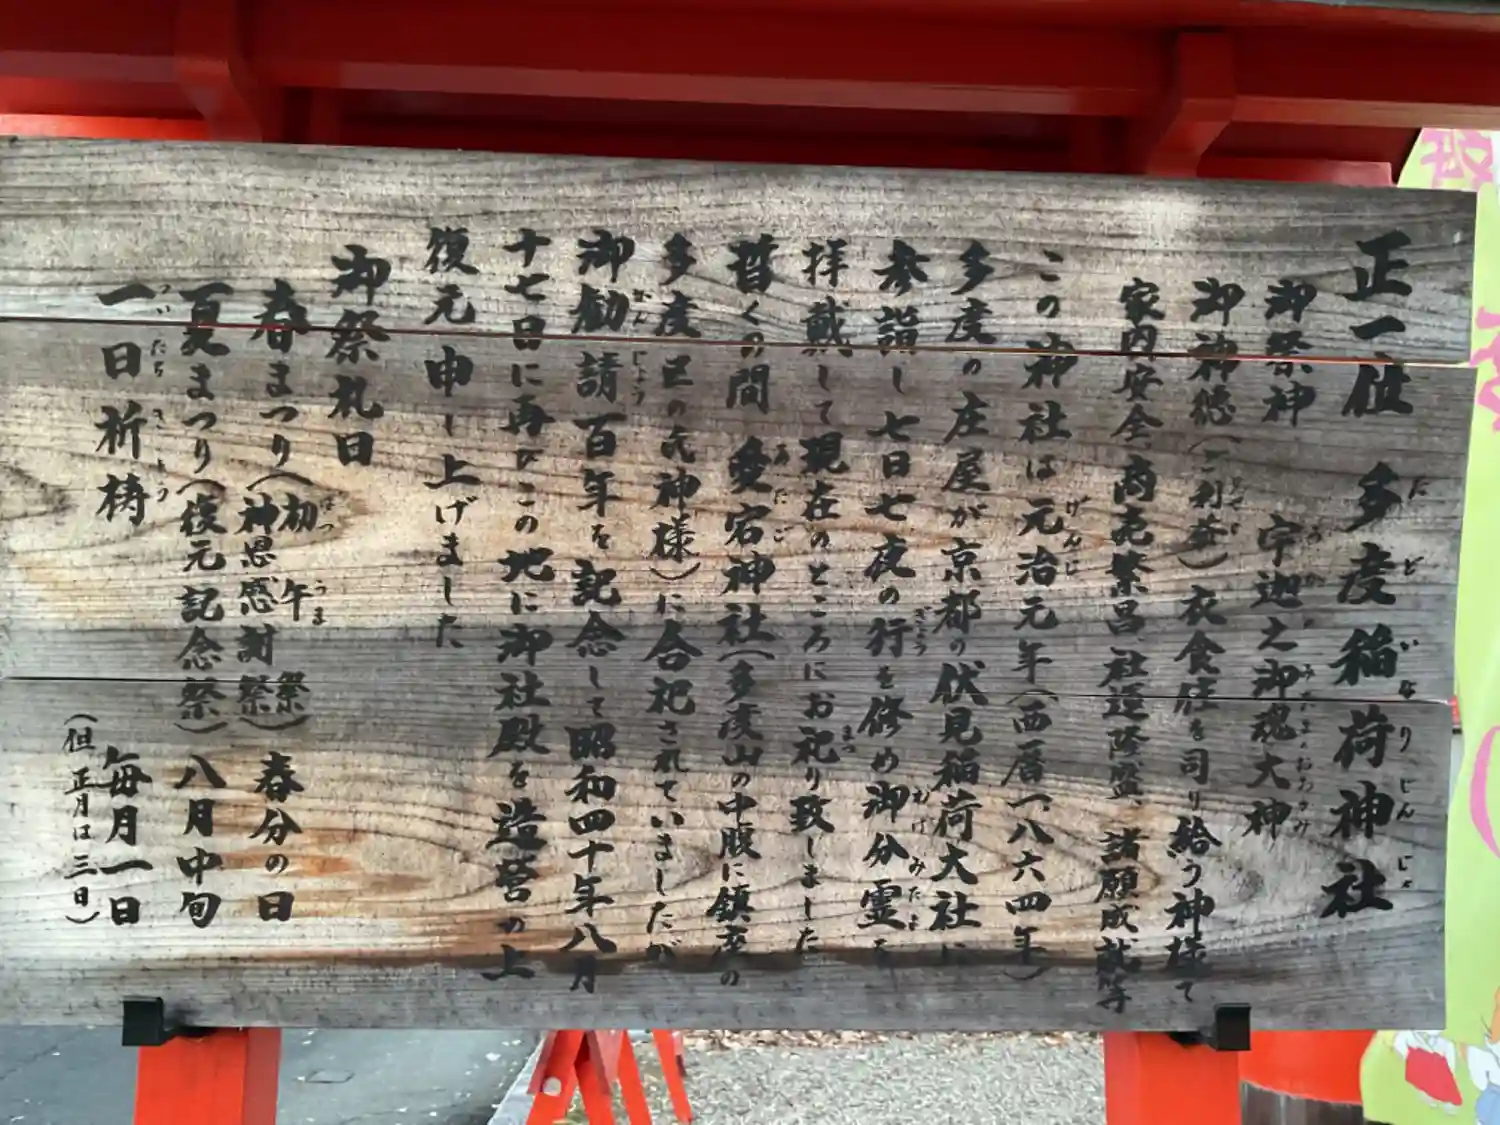 正一位 多度稲荷神社
御祭神 宇迦之御魂大神
御神徳(ご利益) 衣食住を司り給う神様で
家内安全 商売繁昌 社運隆盛、諸願成就等
この神社は元治元年(西暦一八六四年)
多度の庄屋が京都の伏見稲荷大社に
参詣し七日七夜の行を修め御分霊を
拝戴して現在のところにお祀り致しました
暫くの間 愛宕神社(多度山の中腹に鎮座の
多度区の氏神様)に合祀されていましたが
御勧請百年を記念して昭和四十年八月
十七日に再びこの地に御社殿を造営の上
復元申し上げました
御祭礼日
春まつり(初午祭 神恩感謝祭) 春分の日
夏まつり(復元記念祭) 八月中旬
一日祈祷 毎月一日
(但 正月は三日)